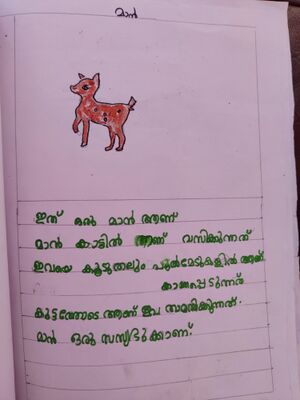 മാൻ
ഇത് ഒരു മാൻ ആണ്
മാൻ കാട്ടിൽ ആണ് വസിക്കുന്നത്
ഇവയെ കൂടുതലും പുൽമേടുകളിൽ ആണ്
കാണപ്പെടുന്നത്
കൂട്ടത്തോടെ ആണ് ഇവ താമസിക്കുന്നത്.
മാൻ ഒരു സസ്യഭുക്കാണ്.